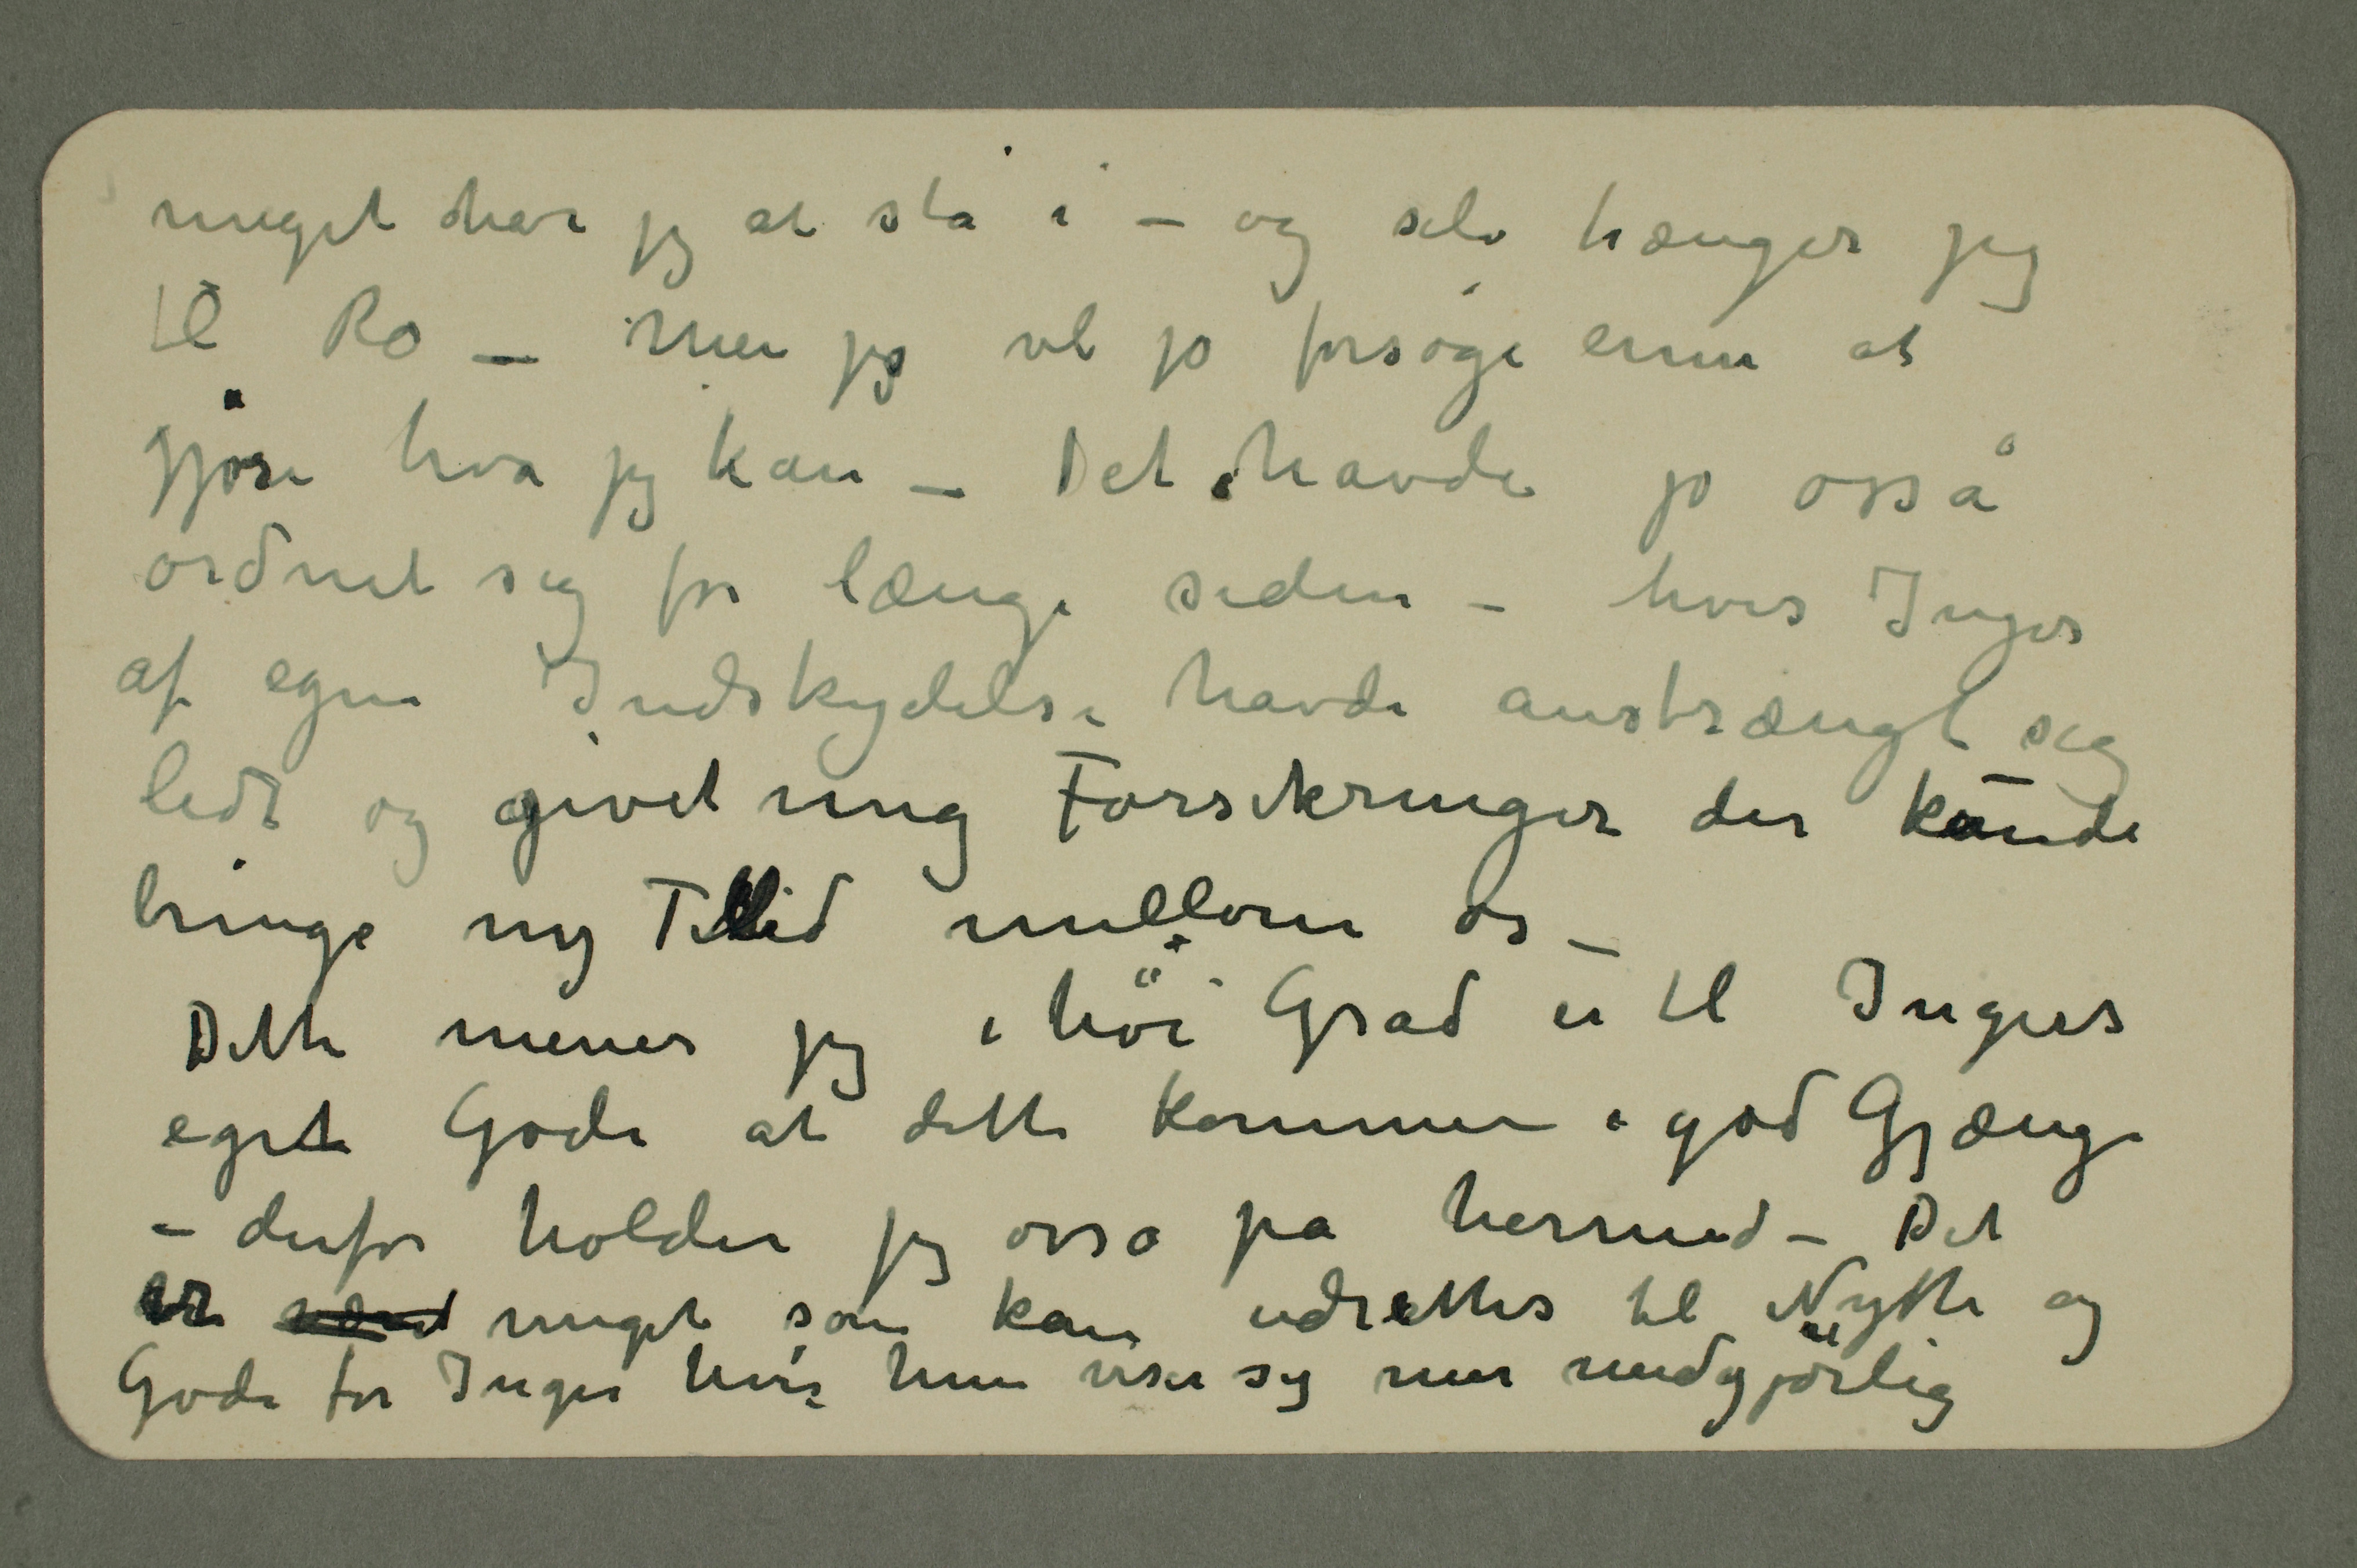 meget har jeg at stå i – og selv trænger jeg
til Ro – Men jeg vil jo forsøge ennu at
gjøre hva jeg kan – Det havde jo også
ordnet sig for længe siden – hvis Inger
af egen Indskydelse havde anstrængt sig
lidt og givet mig Forsikringer der kunde
bringe ny Tillid mellom os –
Dette mener jeg i höi Grad er til Ingers
eget Gode at dette kommer i god Gjænge
– derfor holder jeg osså på hermed – Det
er meget som kan udrettes til Nytte og
Gode for Inger hvis hun viser sig mer medgjörlig